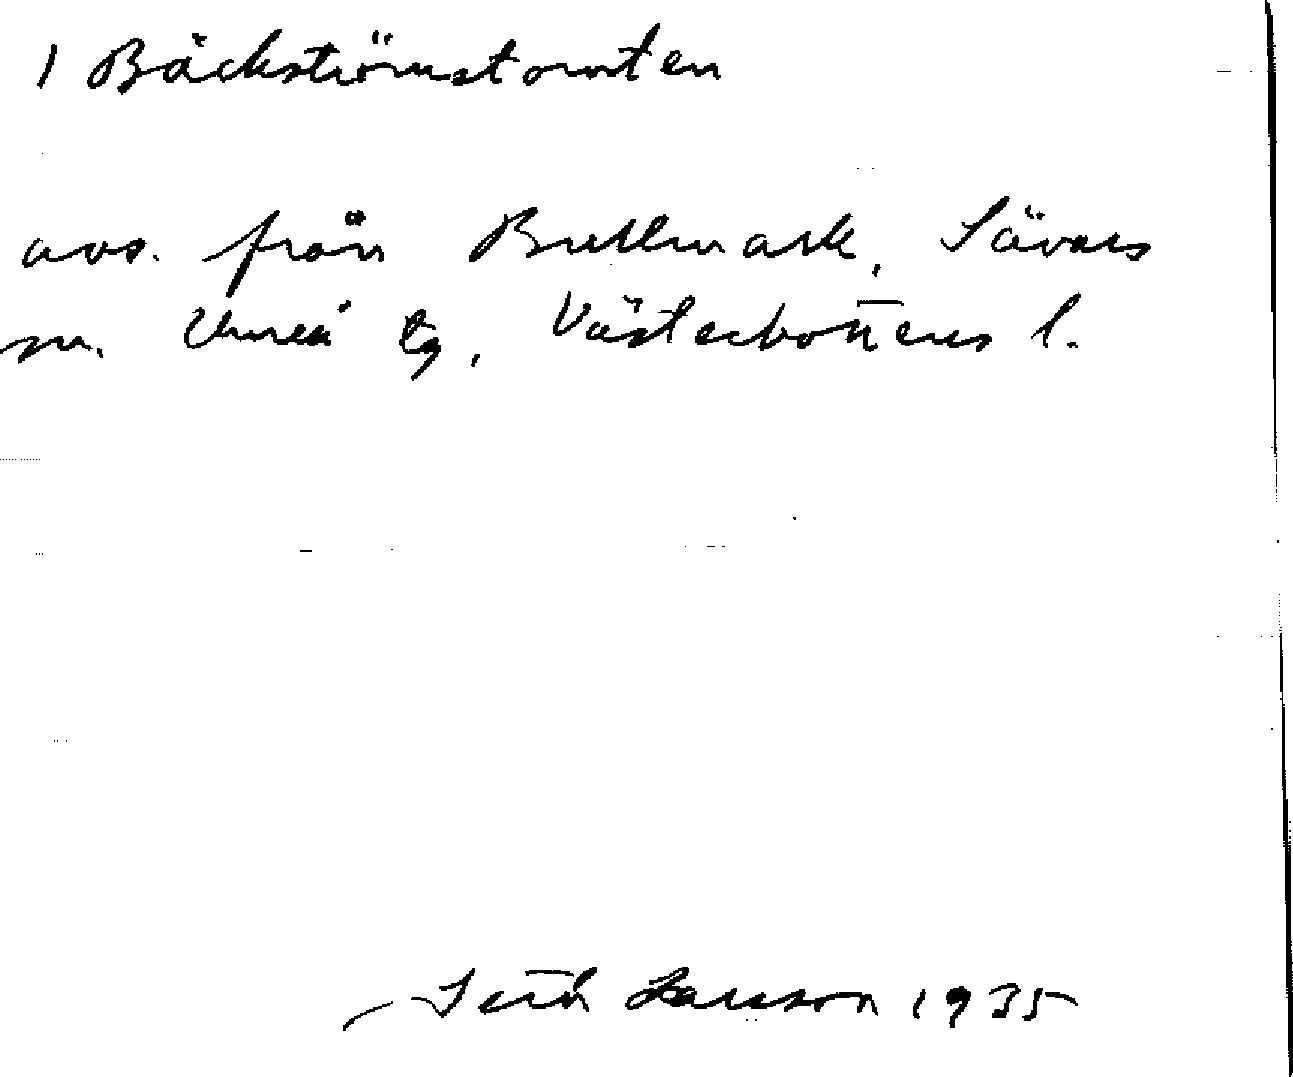 1 Bäckströmstomten
avs. från Bullmark, Sävars
sn. Umeå tg, Västerbottens l.
Seth Larsson 1935